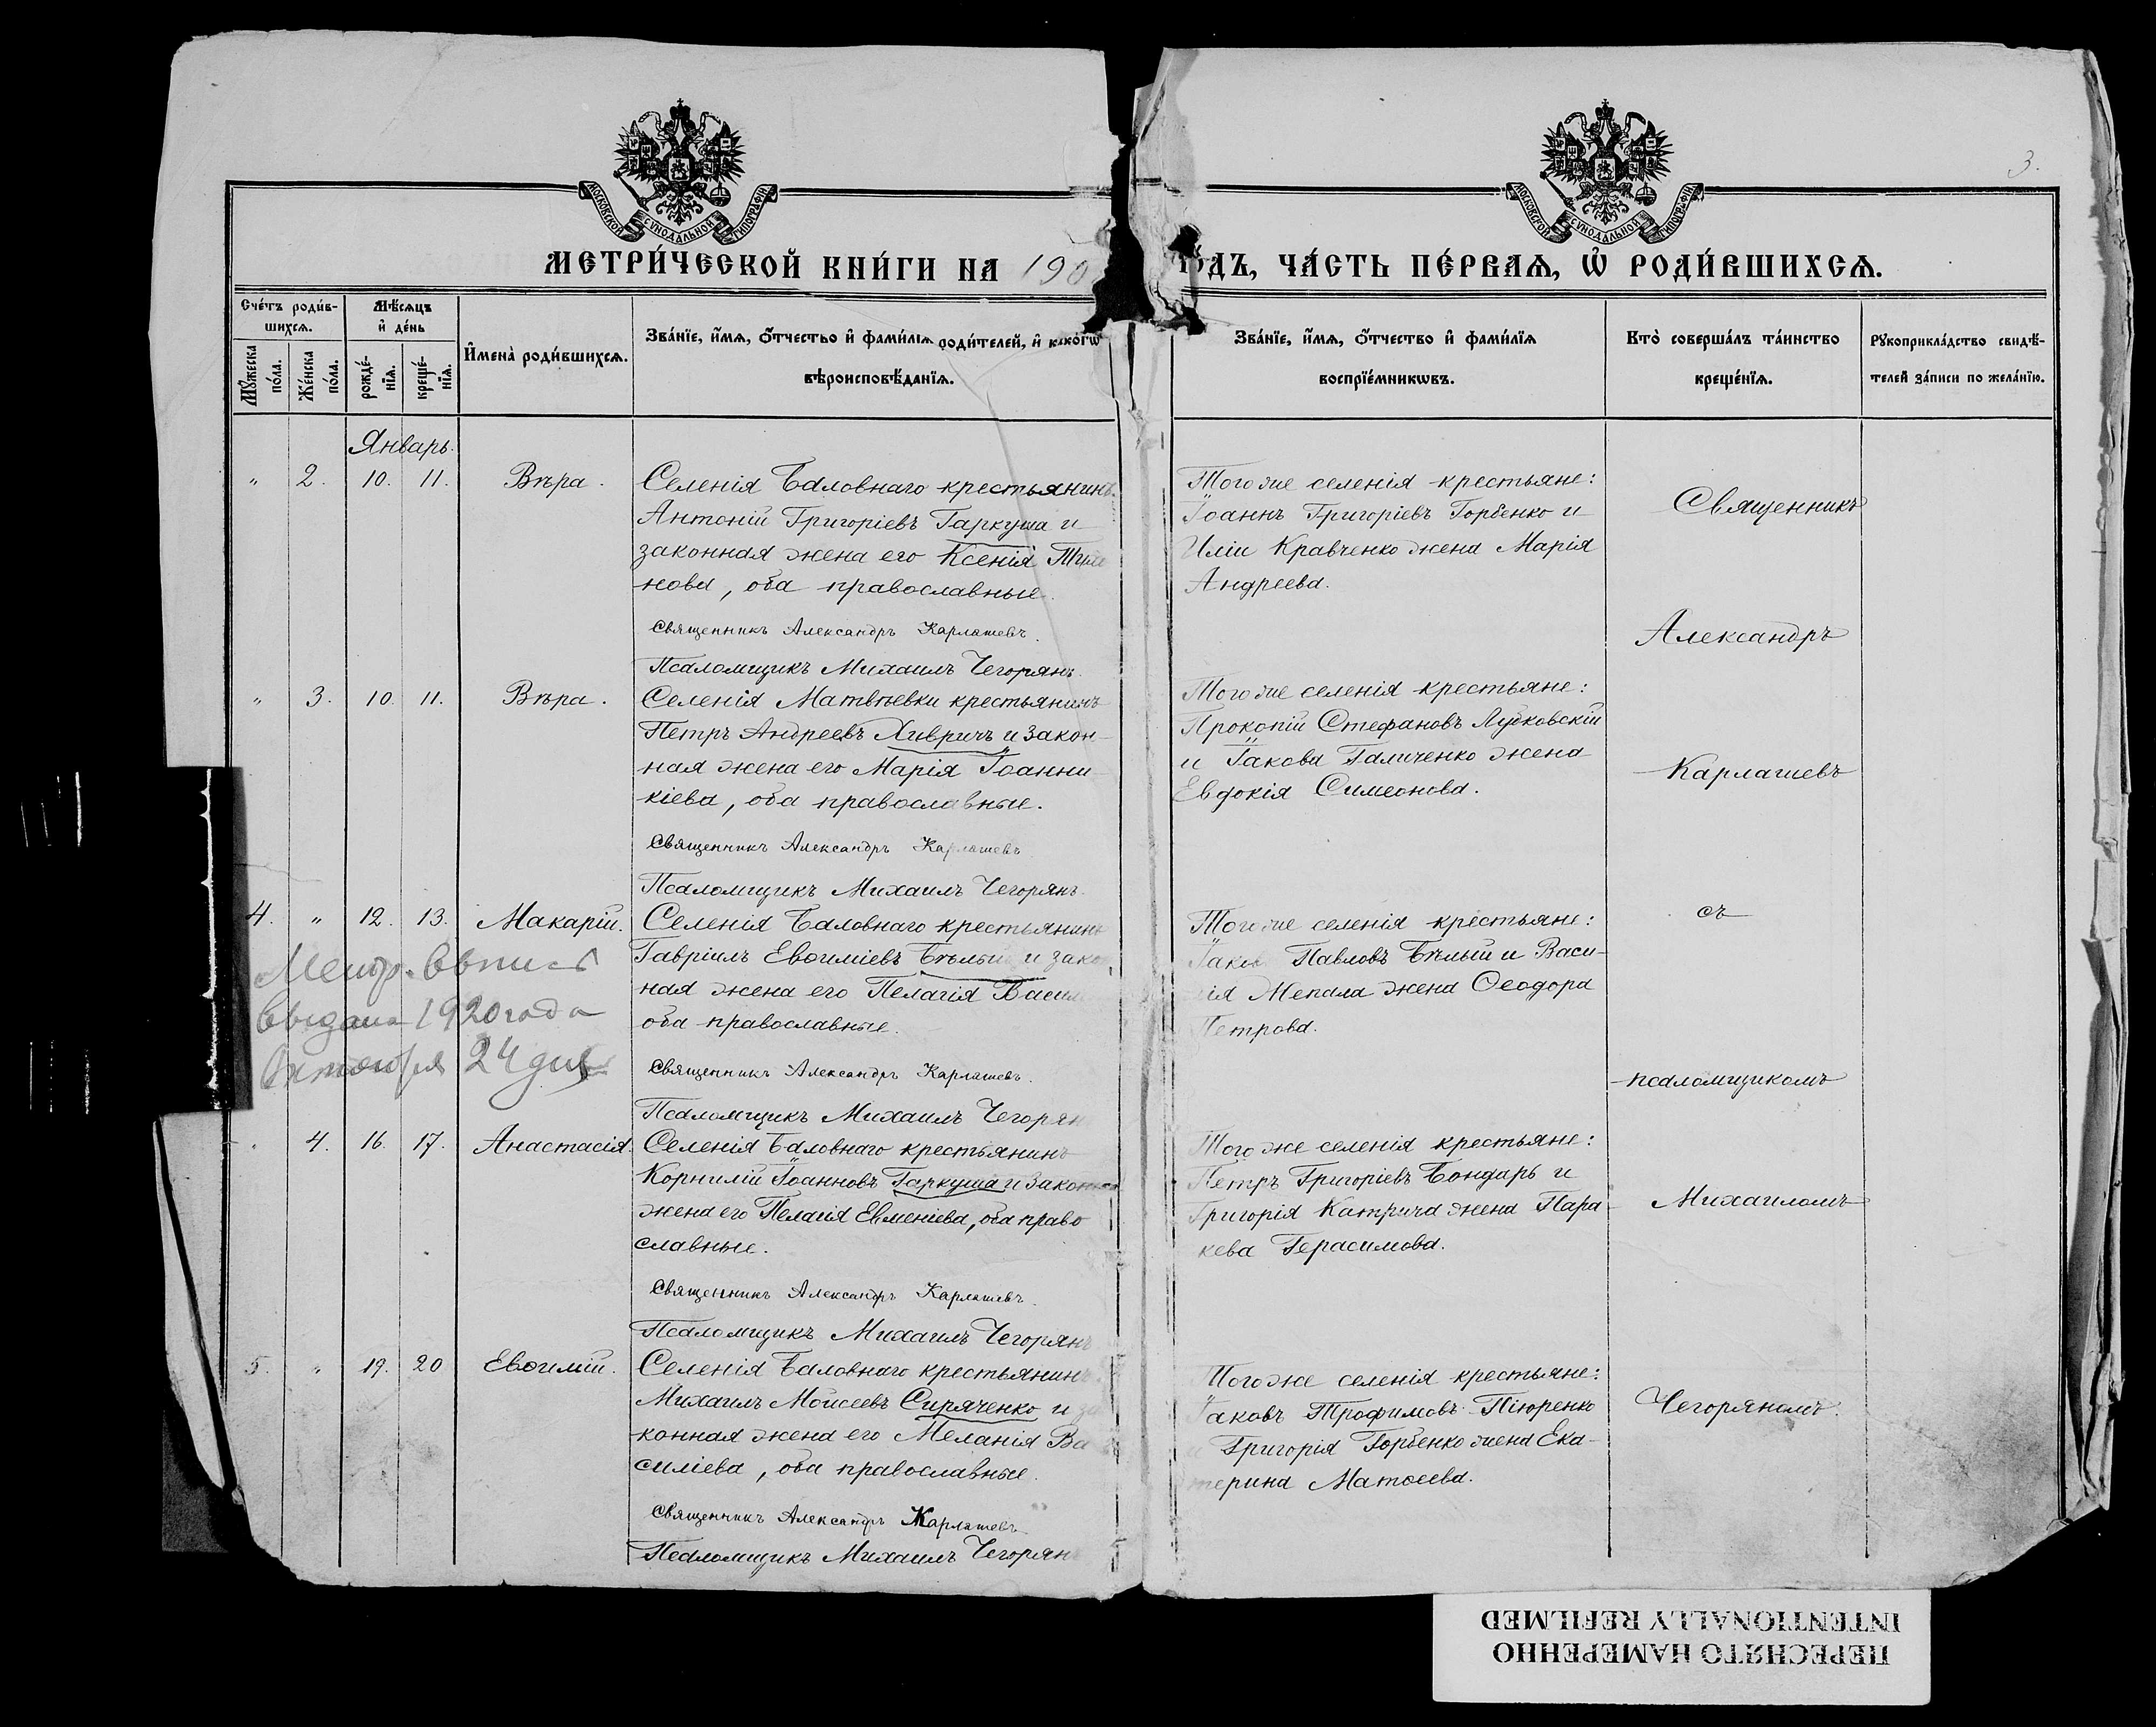 3.
МОСКОВСКОЙ СѴНОДАЛЬНОЙ ТИПОГРАФІИ
МОСКОВСКОЙ СѴНОДАЛЬНОЙ ТИПОГРАФІИ
МЕТРИ́ЧЕСКОЙ КНИ́ГИ НА 190
ДЪ, ЧА́СТЬ ПЕ́РВАѦ, Ѡ҆ РОДИ́ВШИХСѦ.
Сче́тъ роди́в-
шихсѧ.
Мꙋ́жеска по́ла.
Же́нска по́ла.
Мѣ́сѧцъ
и҆ де́нь
рожде́-
нїѧ.
креще́-
нїѧ.
И҆мена̀ роди́вшихсѧ.
Зва́нїе, и҆́мѧ, ѻ҆́тчество и҆ фами́лїѧ роди́телей, и҆ како́гѡ
вѣроисповѣ́данїѧ.
Зва́нїе, и҆́мѧ, ѻ҆́тчество и҆ фами́лїѧ
воспрїе́мникѡвъ.
Кто̀ соверша́лъ та́инство
креще́нїѧ.
Рꙋкоприкла́дство свидѣ́-
телей за́писи по жела́нїю.
Январь.
" 2. 10. 11. Вѣра.
Селенія Баловнаго крестьянинъ
Антоній Григоріевъ Гаркуша и
законная жена его Ксенія
нова, оба православные.
Священникъ Александръ Карлашевъ.
Псаломщикъ Михаилъ Чегорянъ.
Того же селенія крестьяне:
Іоаннъ Григоріевъ Горбенко и
Иліи Кравченко жена Марія
Андреева.
" 3. 10. 11. Вѣра.
Селенія Матвѣевки крестьянинъ
Петръ Андреевъ Хивричъ и закон-
ная жена его Марія Іоанни-
кіева, оба православные.
Священникъ Александръ Карлашевъ
Псаломщикъ Михаилъ Чегорянъ.
Того же селенія крестьяне:
Прокопій Стефановъ Лубковскій
и Іакова Галиченко жена
Евдокія Симеонова.
4. " 12. 13. Макарій.
Селенія Баловнаго крестьянинъ
Гавріилъ Евѳиміевъ Бѣлый и закон
ная жена его Пелагія Васил
оба православные.
Священникъ Александръ Карлашевъ.
Псаломщикъ Михаилъ Чегорян
Того же селенія крестьяне:
Іаков Павловъ Бѣлый и Васи-
лія Мепала жена Ѳеодора
Петрова.
Метр. выпись
выдана 1920 года
Октября 24 дня
4. 16. 17. Анастасія.
Селенія Баловнаго крестьянинъ
Корнилій Іоанновъ Гаркуша и законная
жена его Пелагія Евменіева, оба право
славные.
Священникъ Александръ Карлашевъ.
Псаломщикъ Михаилъ Чегорянъ
Того же селенія крестьяне:
Петръ Григоріевъ Бондарь и
Григорія Катрича жена Пара-
кева Герасимова.
5. " 19. 20 Евѳимій.
Селенія Баловнаго крестьянинъ
Михаилъ Моисеевъ Сиряченко и за
конная жена его Меланія Ва
силіева, оба православные.
Священникъ Александръ Карлашевъ
Псаломщикъ Михаилъ Чегорян
Того же селенія крестьяне:
Іаковъ Трофимовъ Піюренко
и Григорія Горбенко жена Ека-
терина Матѳеева.
Священникъ
Александръ
Карлашевъ
съ
псаломщикомъ
Михаиломъ
Чегоряномъ.
ПЕРЕСНЯТО НАМЕРЕННО
INTENTIONALLY REFILMED